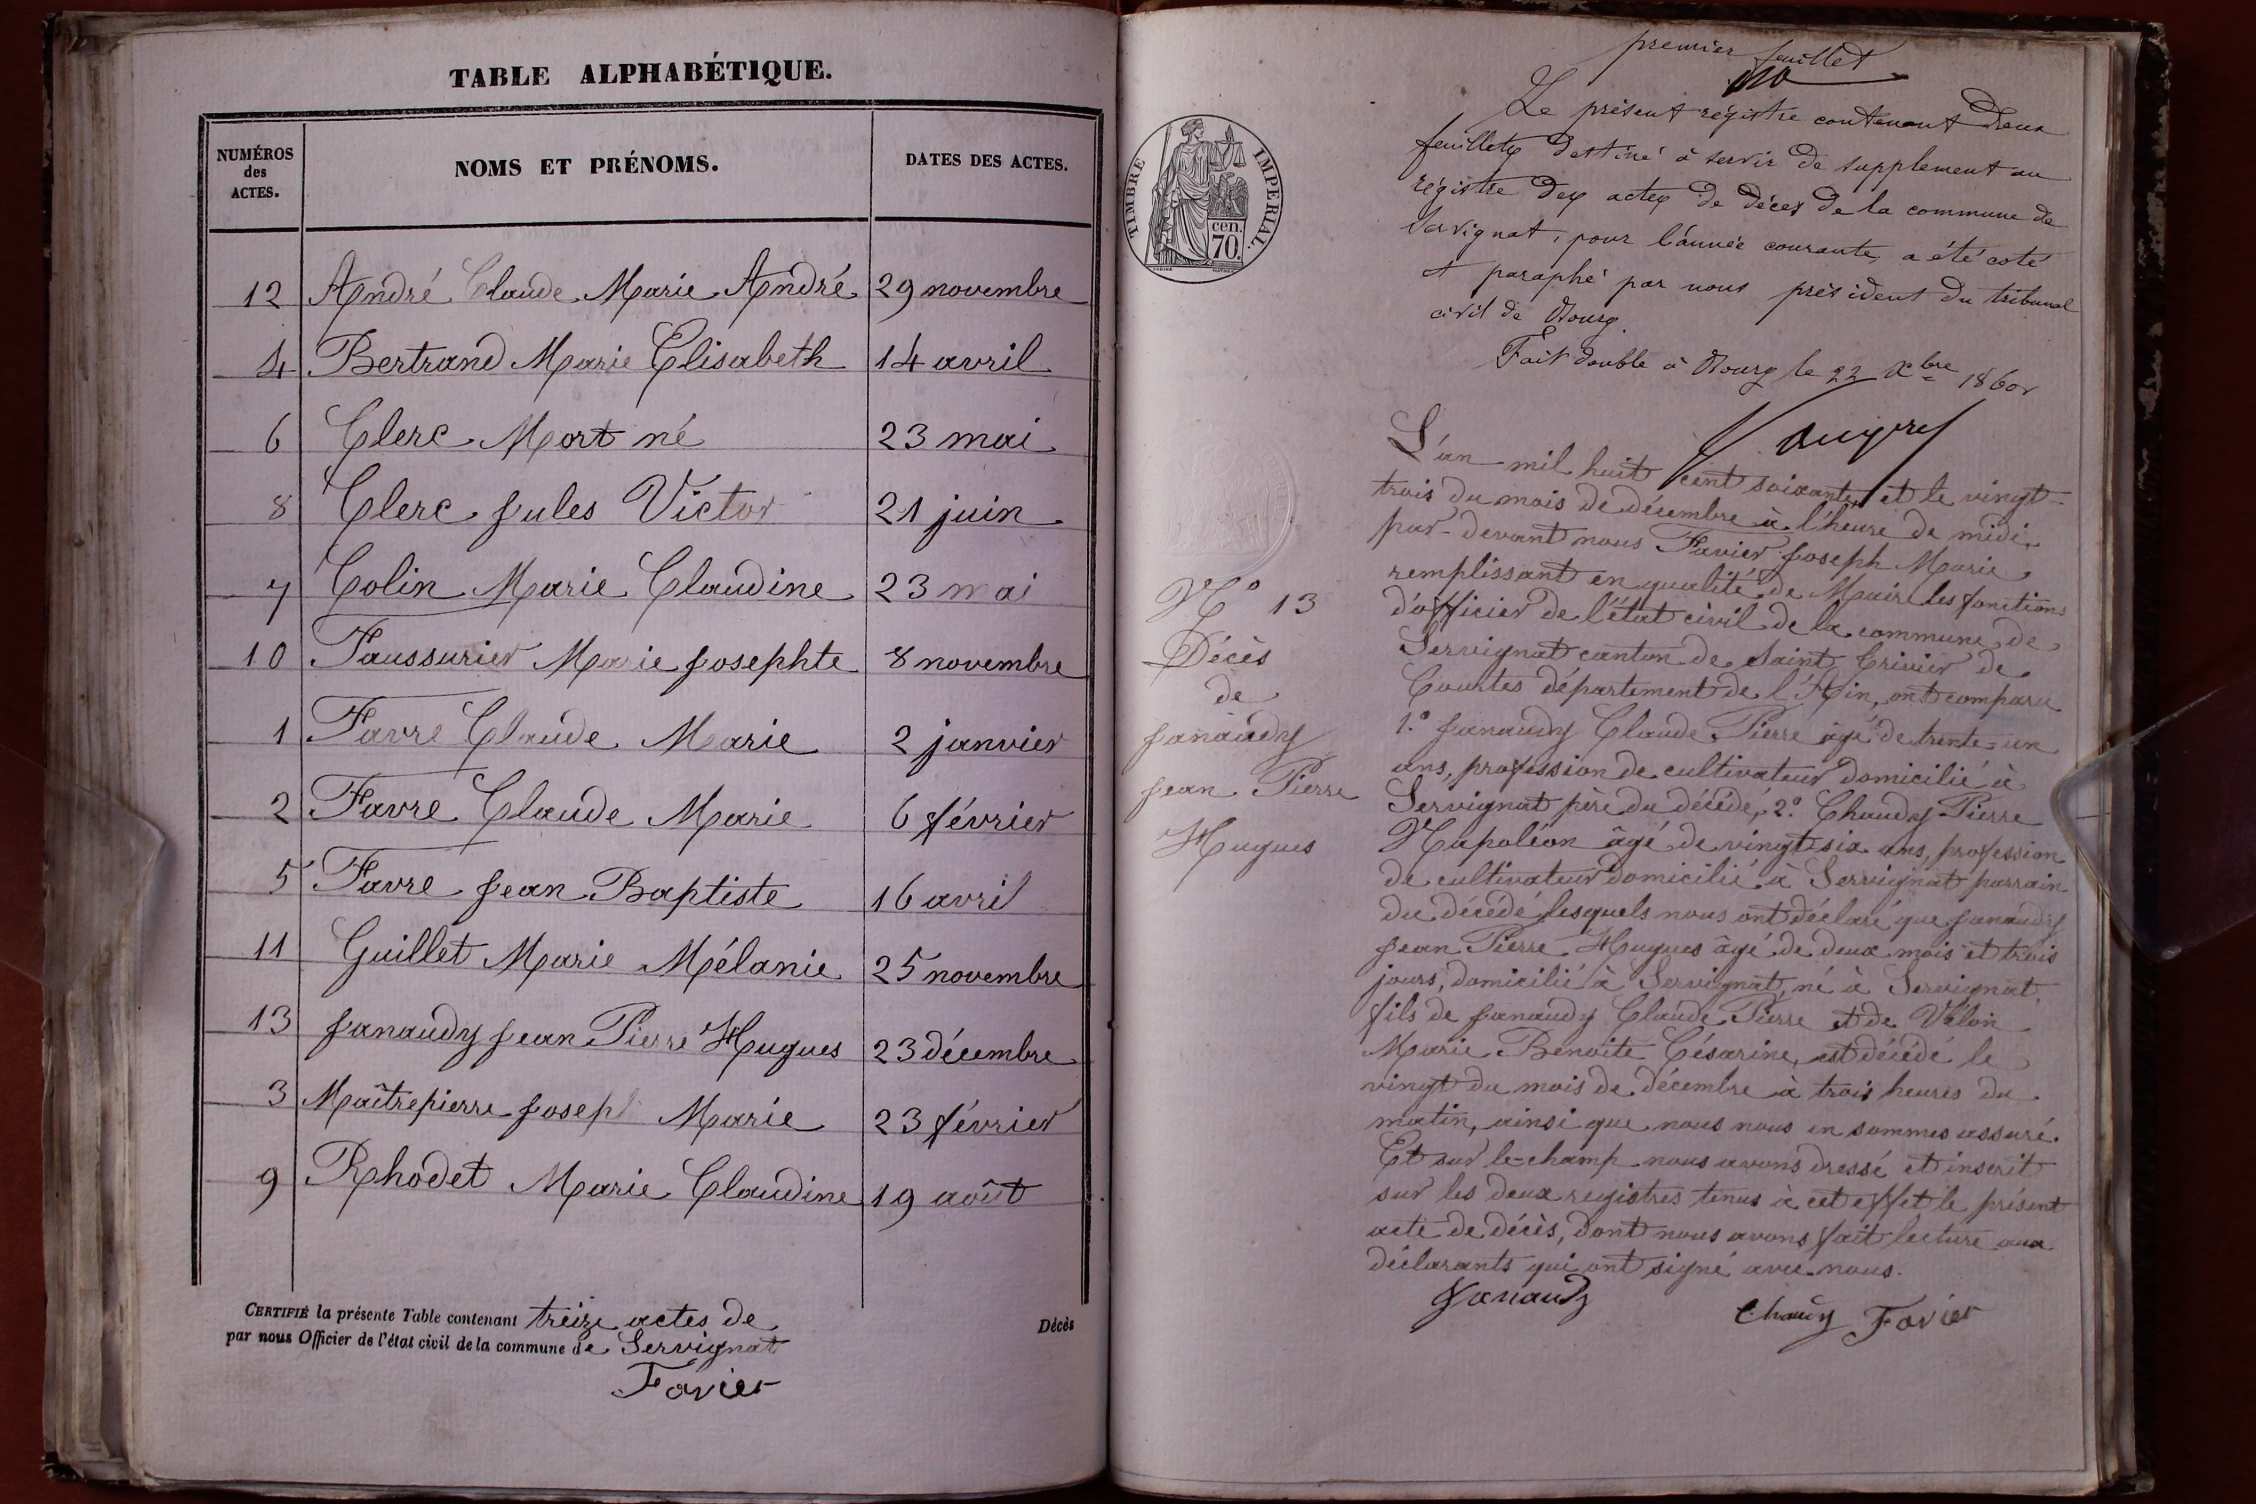 TABLE ALPHABÉTIQUE.
NUMÉROS des ACTES. NOMS ET PRÉNOMS. DATES DES ACTES.
12 André Claude Marie André 29 novembre
4 Bertrand Marie Elisabeth 14 avril
6 Clerc Mort né 23 mai
8 Clerc Jules Victor 21 juin
7 Colin Marie Claudine 23 mai
10 Faussurier Marie Josephte 8 novembre
1 Favre Claude Marie 2 janvier
2 Favre Claude Marie 6 février
5 Favre Jean Baptiste 16 avril
11 Guillet Marie Mélanie 25 novembre
13 Janaudy Jean Pierre Hugues 23 décembre
3 Maîtrepierre Joseph Marie 23 février
9 Rhodet Marie Claudine 19 août
CERTIFIÉ la présente Table contenant treize actes de Décès
par nous Officier de l'état civil de la commune de Servignat
Favier
premier feuillet
TIMBRE IMPERIAL.
cen.
70.
Le présent régistre contenant deux
feuillets destiné à servir de supplement au
régistre des actes de décès de la commune de
Servignat, pour l'année courante, a été coté
et paraphé par nous président du tribunal
civil de Bourg.
Fait double à Bourg le 22 Xbre 1860
N° 13
Décès
de
Janaudy
Jean Pierre
Hugues
L'an mil huit cent soixante, et le vingt-
trois du mois de décembre à l'heure de midi,
par-devant nous Favier Joseph Marie
remplissant en qualité de Maire les fonctions
d'officier de l'état civil de la commune de
Servignat canton de Saint Trivier de
Courtes département de l'Ain, ont comparu
1.° Janaudy Claude Pierre âgé de trente-un
ans, profession de cultivateur domicilié à
Servignat père du décédé, 2.° Chaudy Pierre
Napoléon âgé de vingt-six ans, profession
de cultivateur domicilié à Servignat parrain
du décédé, lesquels nous ont déclaré que Janaudy
Jean Pierre Hugues âgé de deux mois et trois
jours, domicilié à Servignat, né à Servignat,
fils de Janaudy Claude Pierre et de Vélon
Marie Benoite Césarine, est décédé le
vingt du mois de décembre à trois heures du
matin, ainsi que nous nous en sommes assuré.
Et sur le-champ nous avons dressé et inscrit
sur les deux registres tenus à cet effet le présent
acte de décès, dont nous avons fait lecture aux
déclarants qui ont signé avec nous.
Janaudy Chaudy Favier